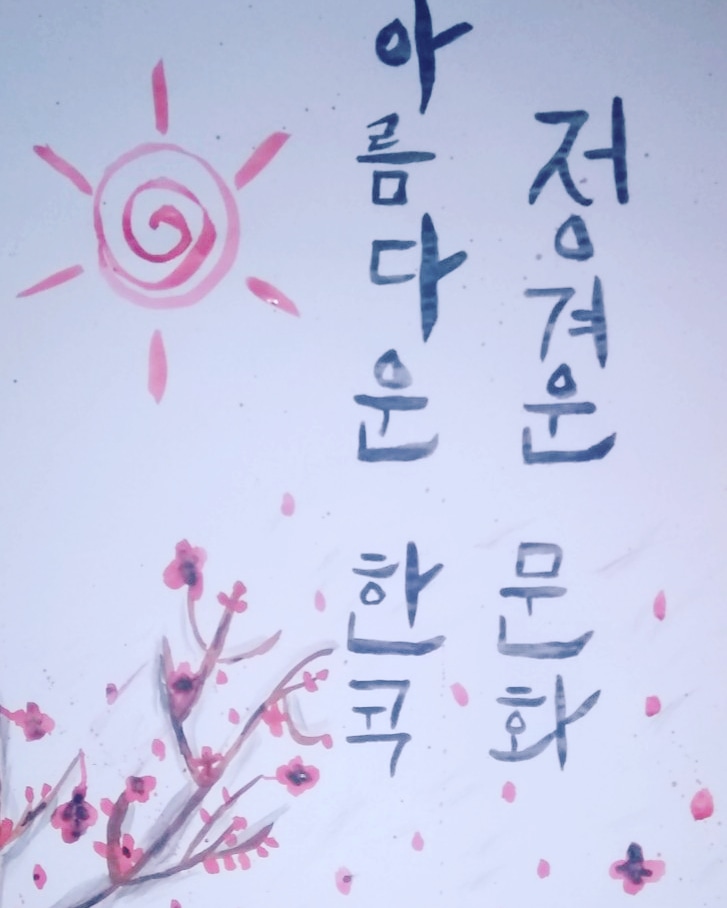 정겨운 문화
아름다운 한국